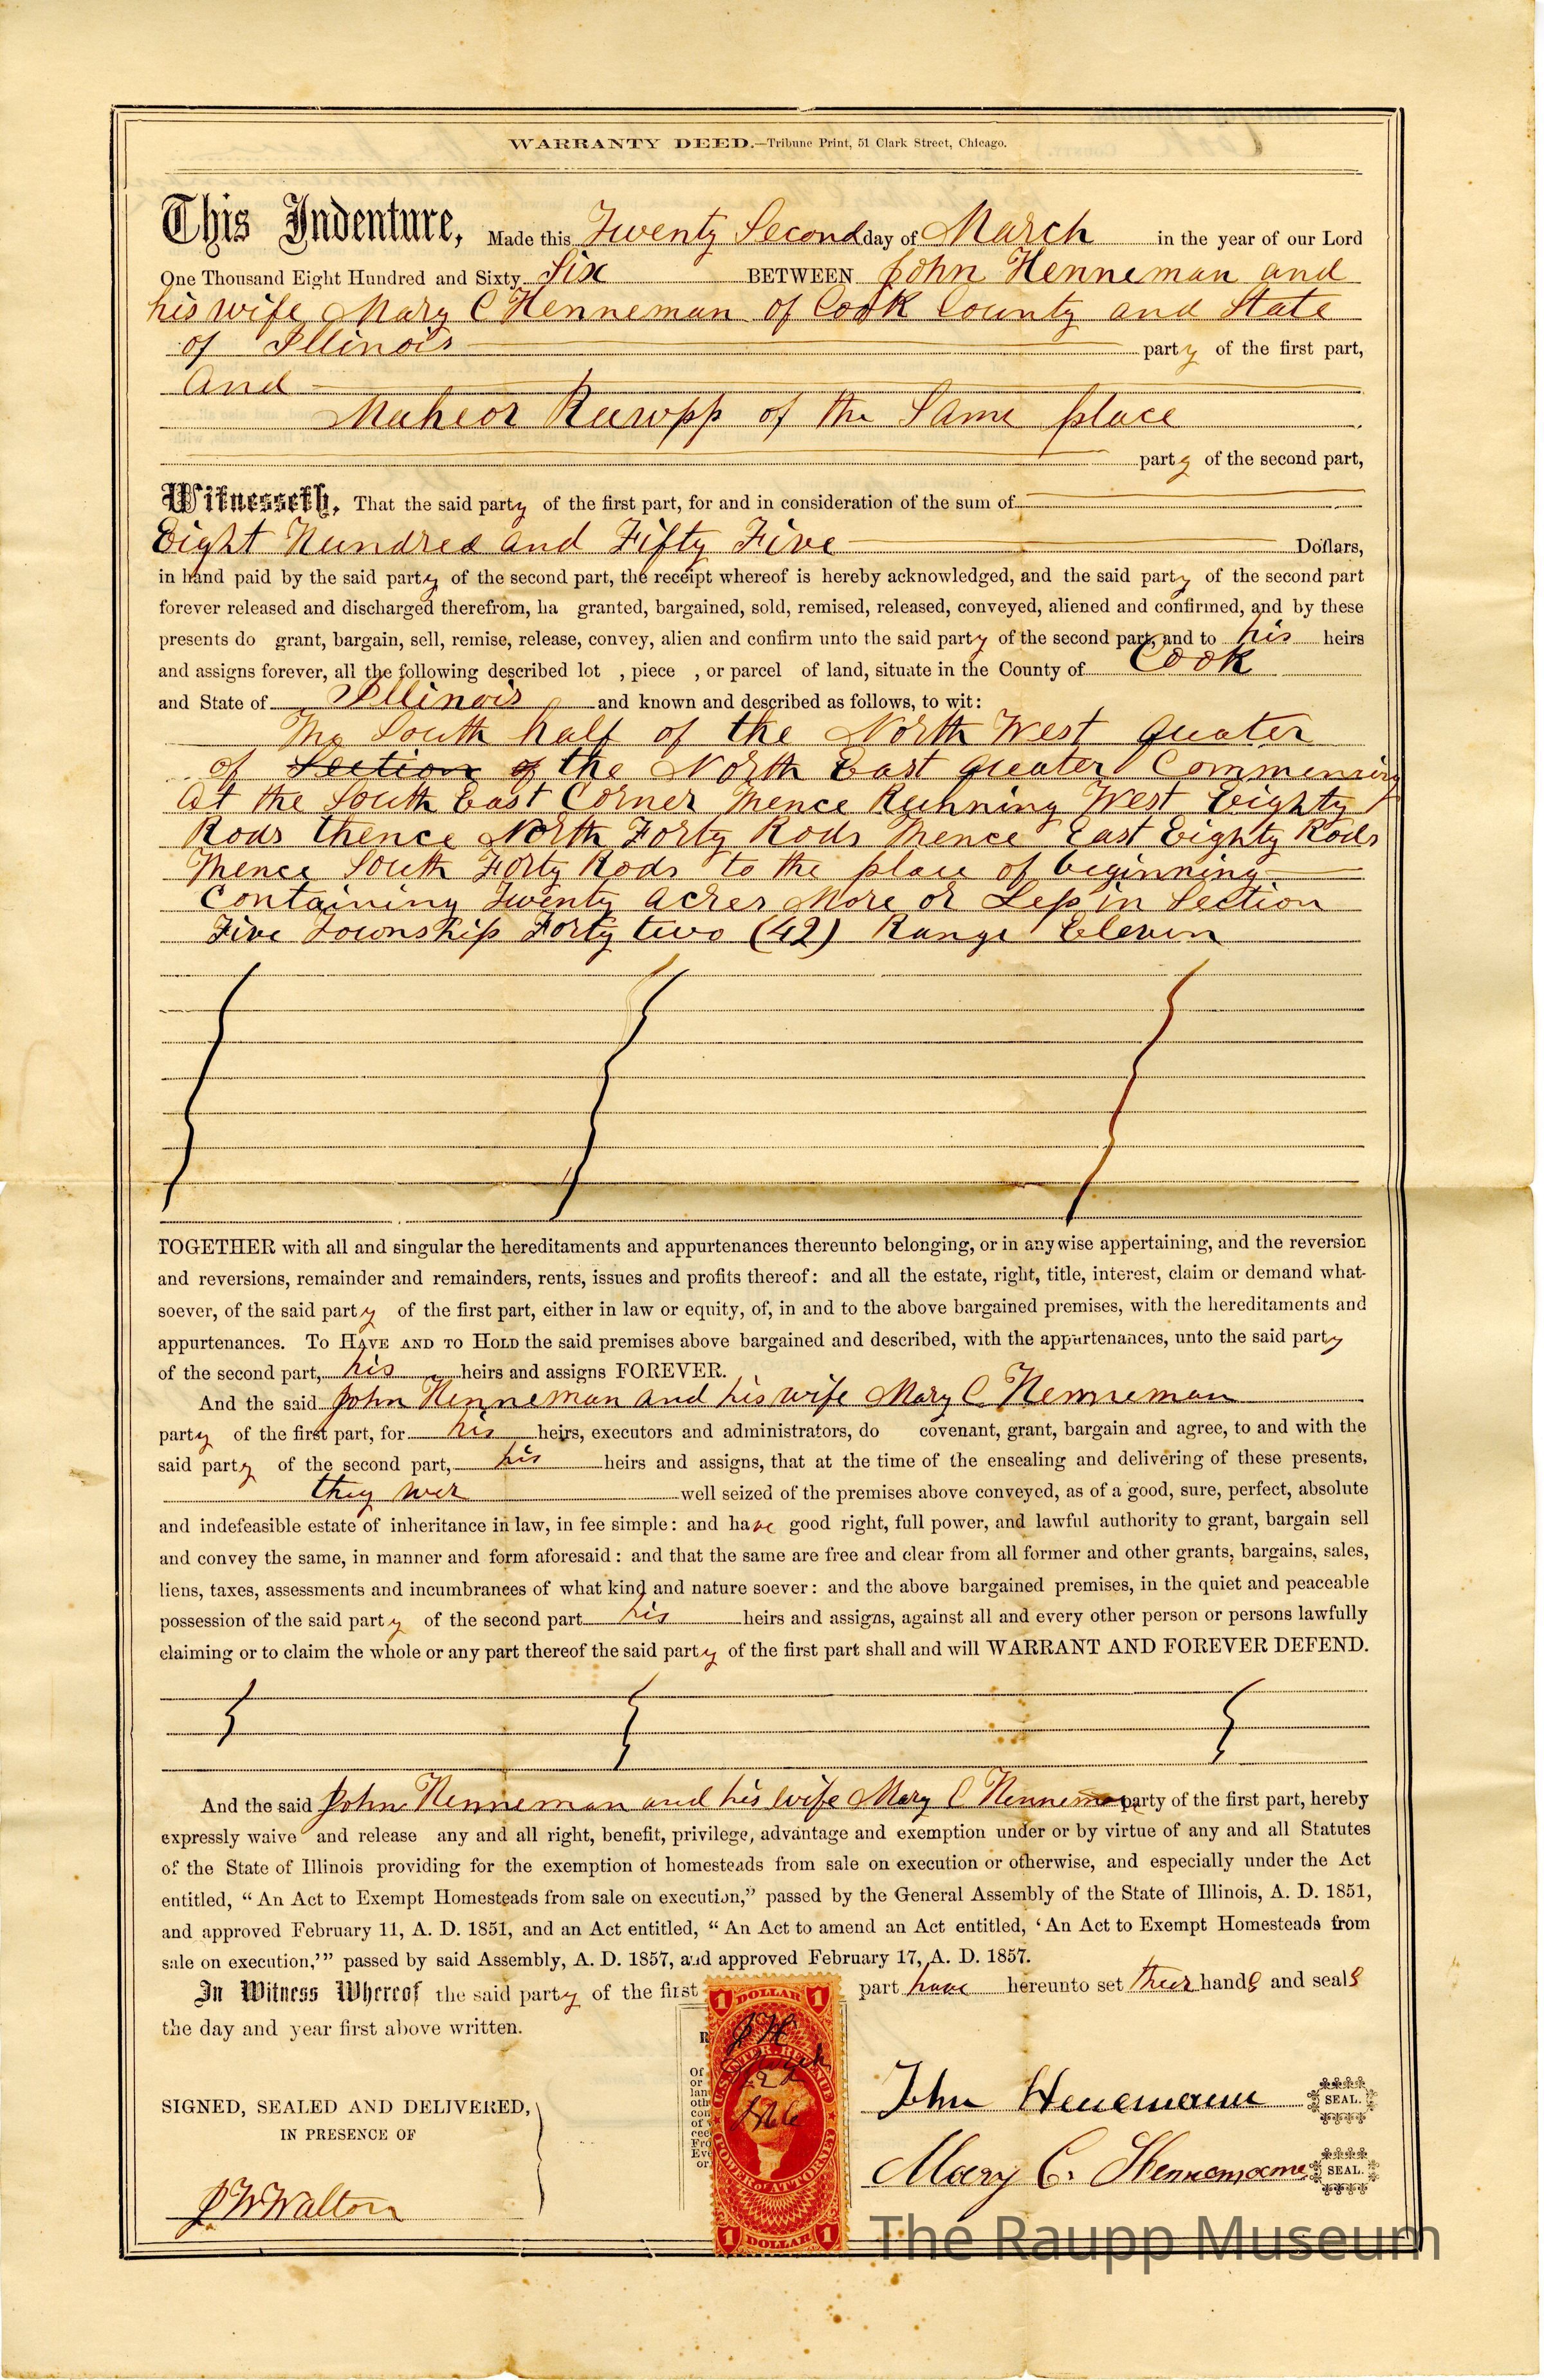 WARRANTY DEED.—Tribune Print, 51 Clark Street, Chicago.
This Indenture, Made this Twenty Second day of March in the year of our Lord
One Thousand Eight Hundred and Sixty Six BETWEEN John Henneman and
his wife Mary C Henneman of Cook County and State
of Illinois party of the first part,
and
Maheor Ruwpp of the Same place
party of the second part,
Witnesseth, That the said party of the first part, for and in consideration of the sum of
Eight Hundred and Fifty Five Dollars,
in hand paid by the said party of the second part, the receipt whereof is hereby acknowledged, and the said party of the second part
forever released and discharged therefrom, ha granted, bargained, sold, remised, released, conveyed, aliened and confirmed, and by these
presents do grant, bargain, sell, remise, release, convey, alien and confirm unto the said party of the second part, and to his heirs
and assigns forever, all the following described lot , piece , or parcel of land, situate in the County of Cook
and State of Illinois and known and described as follows, to wit:
The South half of the North West quater
of Section of the North East queater Commensing
at the South East Corner thence Running West Eighty
Rods thence North Forty Rods thence East Eighty Rods
thence South Forty Rods to the place of beginning
Containing Twenty Acres More or Less in Section
Five Township Forty two (42) Range Eleven
TOGETHER with all and singular the hereditaments and appurtenances thereunto belonging, or in anywise appertaining, and the reversion
and reversions, remainder and remainders, rents, issues and profits thereof: and all the estate, right, title, interest, claim or demand what-
soever, of the said party of the first part, either in law or equity, of, in and to the above bargained premises, with the hereditaments and
appurtenances. TO HAVE AND TO HOLD the said premises above bargained and described, with the appurtenances, unto the said party
of the second part, his heirs and assigns FOREVER.
And the said John Henneman and his wife Mary C Henneman
party of the first part, for his heirs, executors and administrators, do covenant, grant, bargain and agree, to and with the
said party of the second part, his heirs and assigns, that at the time of the ensealing and delivering of these presents,
they wer well seized of the premises above conveyed, as of a good, sure, perfect, absolute
and indefeasible estate of inheritance in law, in fee simple: and have good right, full power, and lawful authority to grant, bargain sell
and convey the same, in manner and form aforesaid: and that the same are free and clear from all former and other grants, bargains, sales,
liens, taxes, assessments and incumbrances of what kind and nature soever: and the above bargained premises, in the quiet and peaceable
possession of the said party of the second part his heirs and assigns, against all and every other person or persons lawfully
claiming or to claim the whole or any part thereof the said party of the first part shall and will WARRANT AND FOREVER DEFEND.
And the said John Henneman and his wife Mary C Henneman party of the first part, hereby
expressly waive and release any and all right, benefit, privilege, advantage and exemption under or by virtue of any and all Statutes
of the State of Illinois providing for the exemption of homesteads from sale on execution or otherwise, and especially under the Act
entitled, “An Act to Exempt Homesteads from sale on execution,” passed by the General Assembly of the State of Illinois, A. D. 1851,
and approved February 11, A. D. 1851, and an Act entitled, “An Act to amend an Act entitled, ‘An Act to Exempt Homesteads from
sale on execution,’” passed by said Assembly, A. D. 1857, and approved February 17, A. D. 1857.
In Witness Whereof the said party of the first part have hereunto set their hands and seals
the day and year first above written.
1 DOLLAR 1
U.S. INTER. REVENUE
J H
March
22d
1866
POWER OF ATTORNEY
1 DOLLAR 1
SIGNED, SEALED AND DELIVERED,
IN PRESENCE OF
J W Walton
John Henemann SEAL.
Mary C. Hennemann SEAL.
The Raupp Museum